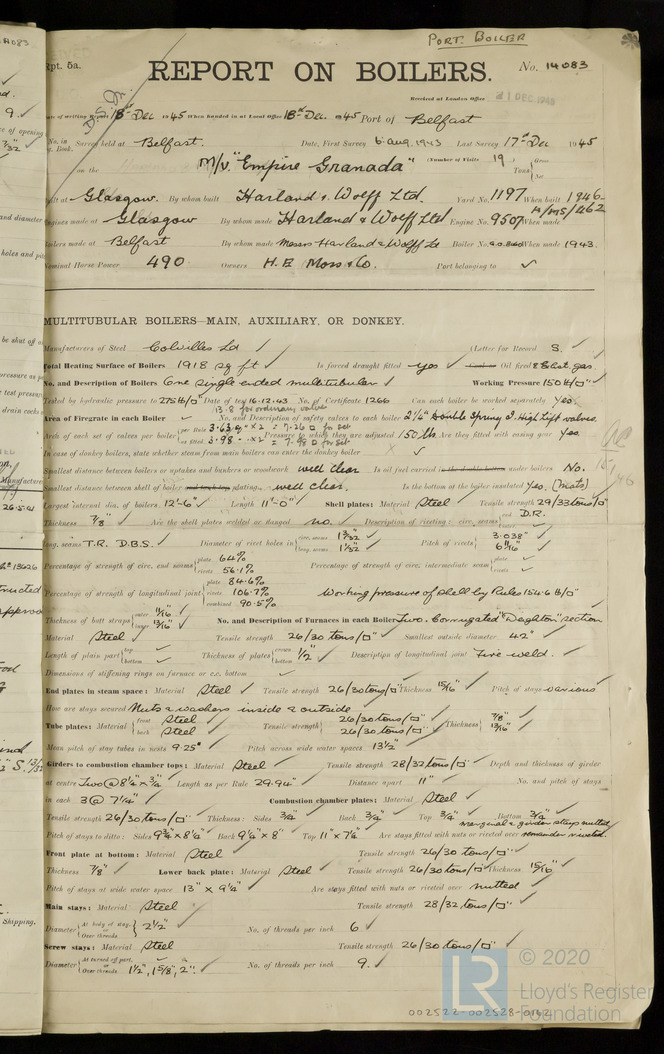 PORT BOILER
Rpt. 5a.
No. 14083
REPORT ON BOILERS.
Received at London Office
21 DEC 1945
Date of writing Report 18th Dec 1945 When handed in at Local Office 18th Dec. 1945 Port of Belfast
No. in Reg. Book. Survey held at Belfast. Date, First Survey 6 aug. 1943 Last Survey 17th Dec 1945
on the M/v. "Empire Granada" (Number of Visits 19) Gross Tons Net
Built at Glasgow. By whom built Harland & Wolff Ltd. Yard No. 1197 When built 1946
Engines made at Glasgow By whom made Harland & Wolff Ltd Engine No. 9507 When made
Boilers made at Belfast By whom made Messrs Harland & Wolff Ltd Boiler No. When made 1943.
Nominal Horse Power 490 Owners H. E Moss & Co. Port belonging to
MULTITUBULAR BOILERS—MAIN, AUXILIARY, OR DONKEY.
Manufacturers of Steel Colvilles Ld (Letter for Record S.
Total Heating Surface of Boilers 1918 sq ft Is forced draught fitted yes Oil fired & Exhst. gas.
No. and Description of Boilers One single ended multitubular Working Pressure 150 lb/□"
Tested by hydraulic pressure to 275 lb/□" Date of test 16.12.43 No. of Certificate 1266 Can each boiler be worked separately Yes.
13.8 for ordinary valves
Area of Firegrate in each Boiler No. and Description of safety valves to each boiler 2½" Double Spring & High Lift valves.
Area of each set of valves per boiler per Rule 3.63 □" x 2 = 7.26 □" for set as fitted 3.98 □" x 2 = 7.98 □" for set Pressure to which they are adjusted 150 lbs Are they fitted with easing gear Yes.
In case of donkey boilers, state whether steam from main boilers can enter the donkey boiler
Smallest distance between boilers or uptakes and bunkers or woodwork well clear Is oil fuel carried in the double bottom under boilers No.
Smallest distance between shell of boiler and tank top plating well clear. Is the bottom of the boiler insulated Yes. (Mats)
Largest internal dia. of boilers 12'-6" Length 11'-0" Shell plates: Material Steel Tensile strength 29/33 tons/□"
Thickness 7/8" Are the shell plates welded or flanged no. Description of riveting: circ. seams end D.R.
long. seams T.R. D.B.S. Diameter of rivet holes in circ. seams 1 3/32" long. seams 1 1/32" Pitch of rivets 3.038" 6 11/16"
Percentage of strength of circ. end seams plate 64% rivets 56.1% Percentage of strength of circ. intermediate seam plate rivets
Percentage of strength of longitudinal joint plate 84.6% rivets 106.7% combined 90.5% Working pressure of shell by Rules 154.6 lb/□"
Thickness of butt straps outer 11/16" inner 13/16" No. and Description of Furnaces in each Boiler Two. Corrugated "Deighton" section
Material Steel Tensile strength 26/30 tons/□" Smallest outside diameter 42"
Length of plain part top bottom Thickness of plates crown bottom 1/2" Description of longitudinal joint Fire weld.
Dimensions of stiffening rings on furnace or c.c. bottom
End plates in steam space: Material Steel Tensile strength 26/30 tons/□" Thickness 15/16" Pitch of stays various
How are stays secured Nuts & washers inside & outside
Tube plates: Material front Steel back Steel Tensile strength 26/30 tons/□" 26/30 tons/□" Thickness 7/8" 13/16"
Mean pitch of stay tubes in nests 9.25" Pitch across wide water spaces 13½"
Girders to combustion chamber tops: Material Steel Tensile strength 28/32 tons/□" Depth and thickness of girder
at centre Two @ 8¼" x ¾" Length as per Rule 29.94" Distance apart 11" No. and pitch of stays
in each 3 @ 7¼" Combustion chamber plates: Material Steel
Tensile strength 26/30 tons/□" Thickness: Sides 3/4" Back 3/4" Top 3/4" Bottom 3/4"
marginal & girder stays nutted
Pitch of stays to ditto: Sides 9¾" x 8¼" Back 9¼" x 8" Top 11" x 7¼" Are stays fitted with nuts or riveted over remainder riveted.
Front plate at bottom: Material Steel Tensile strength 26/30 tons/□"
Thickness 7/8" Lower back plate: Material Steel Tensile strength 26/30 tons/□" Thickness 15/16"
Pitch of stays at wide water space 13" x 9¼" Are stays fitted with nuts or riveted over nutted
Main stays: Material Steel Tensile strength 28/32 tons/□"
Diameter At body of stay, or Over threads 2½" No. of threads per inch 6
Screw stays: Material Steel Tensile strength 26/30 tons/□"
Diameter At turned off part, or Over threads 1½", 1⅝", 2". No. of threads per inch 9.
LR
© 2020
Lloyd's Register
Foundation
002522-002528-0162